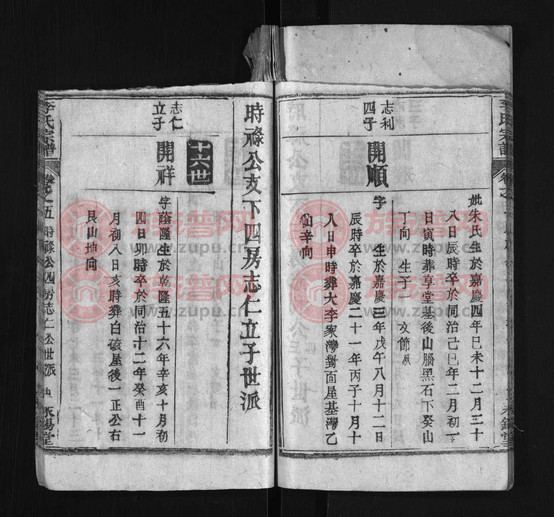 妣朱氏生於嘉慶四年己未十二月三十
八日辰時卒於同治己巳年二月初一
日寅時葬享堂墓後山腦黑石下癸山
丁向 生子 文篩
志利
四子
開順
字 生於嘉慶三年戊午八月十二日
辰時卒於嘉慶二十一年丙子十月十
八日申時葬大李家灣對面屋基灣乙
山辛向
李氏宗譜
時祿公支下四房志仁立子世派
十六世
志仁
立子
開祥
字蔭匯生於乾隆五十六年辛亥十月初
四日卯時卒於同治十二年癸酉十一
月初八日亥時葬白破屋後一正公右
艮山坤向
李氏宗譜
卷之五 時祿公四房志仁公世派
族谱网
www.zupu.cn